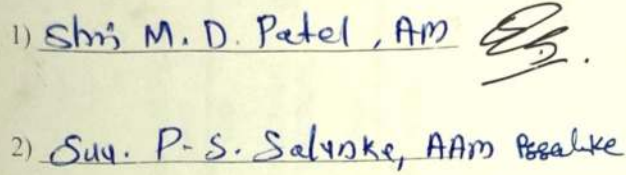 1) Shri M. D. Patel, AM
2) Suy. P. S. Salunke, AAM